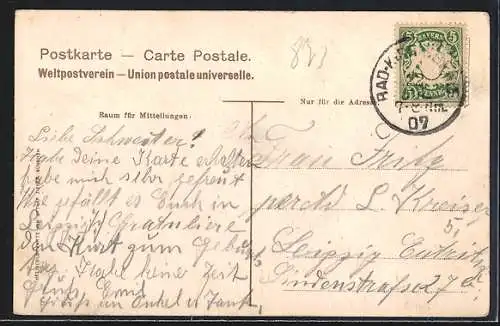 Postkarte — Carte Postale.
Weltpostverein — Union postale universelle.
823
BAYERN
5 5
BAD-K
7-8 Nm.
07
Nur für die Adresse
Raum für Mitteilungen:
Liebe Schwester!
Habe Deine Karte erhalten
habe mich sehr gefreut
Wie gefällt es Euch in
Leipzig Gratuliere
den Kurt zum Geburts
tag Habe keine Zeit
Gruss Emil
Gruss an Onkel u Tante
Frau Fritz
L. Kreizer
Leipzig Eutritz
Lindenstrasse 27